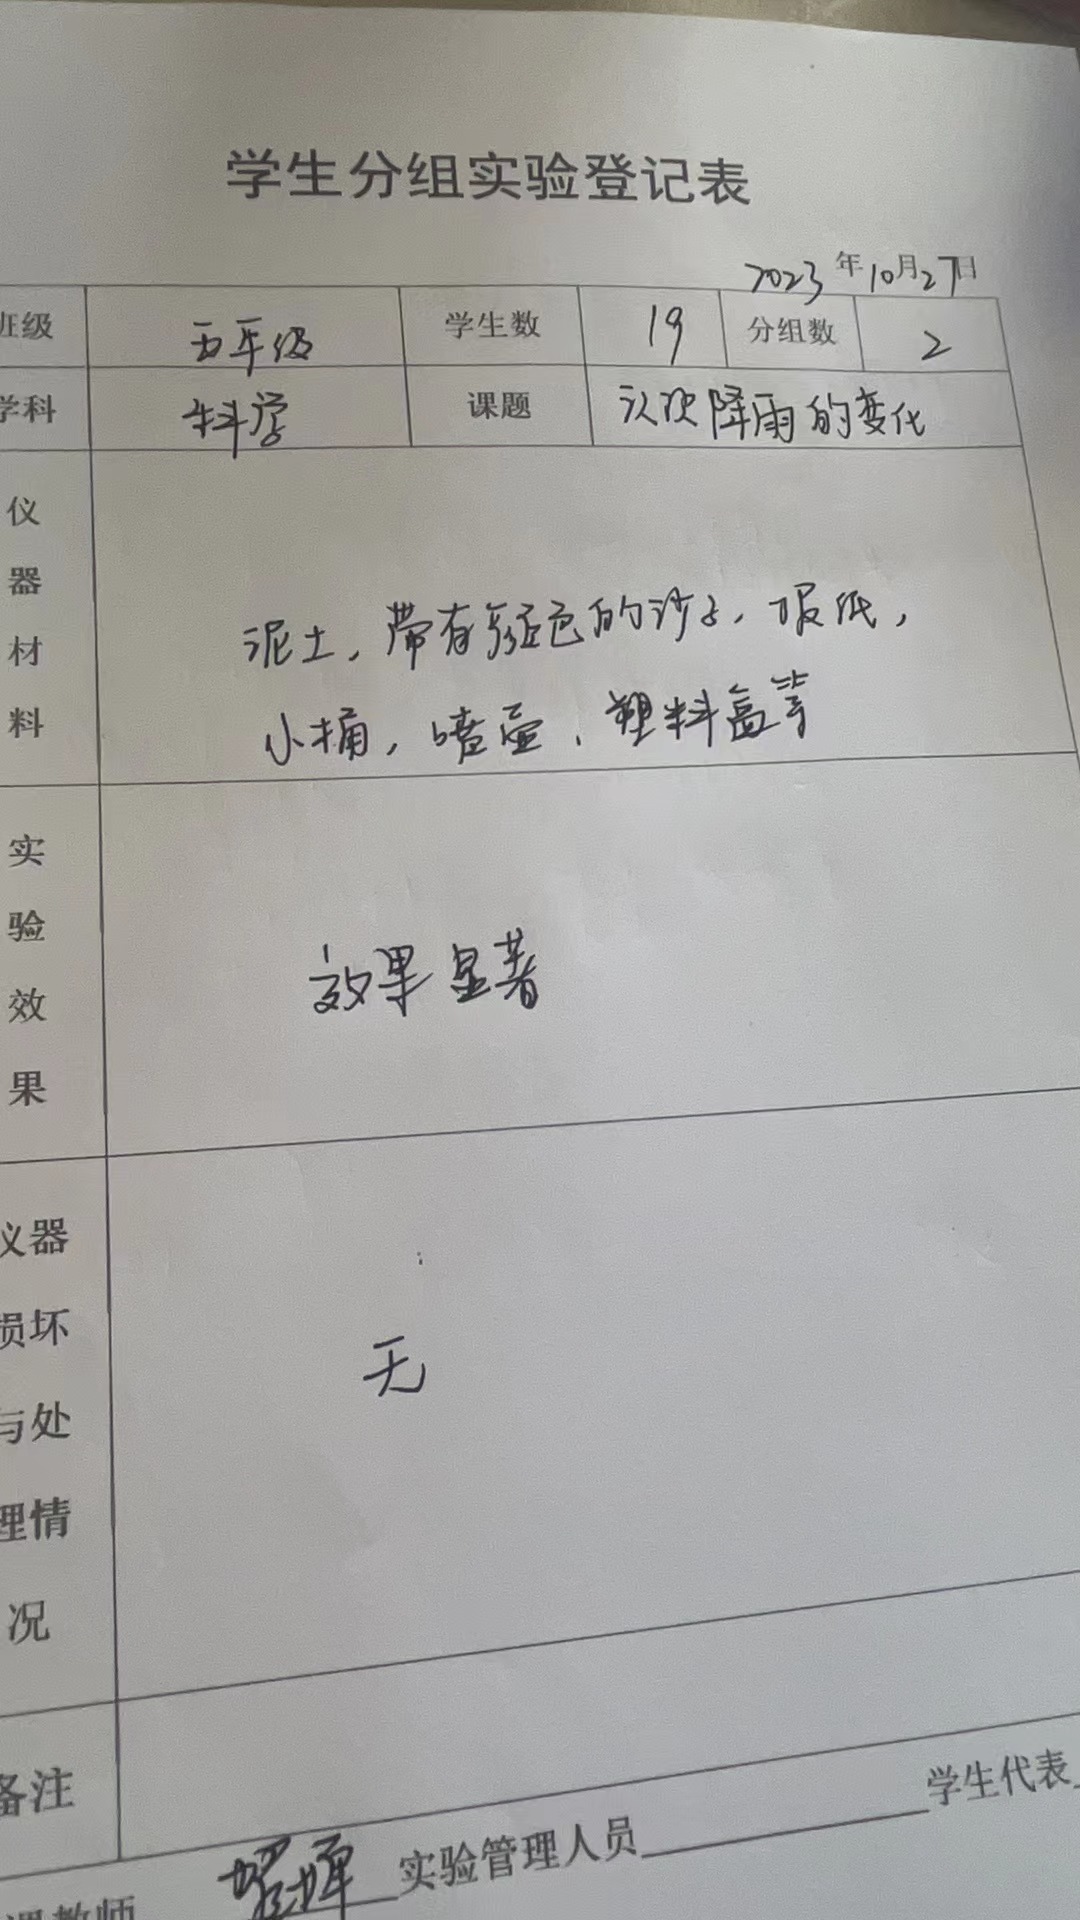 学生分组实验登记表
2023年10月27日
班级 五年级 学生数 19 分组数 2
学科 科学 课题 认识降雨的变化
仪器材料
泥土,带有颜色的沙子,报纸,
小桶,喷壶,塑料盒等
实验效果
效果显著
仪器
损坏
与处
理情
况
无
备注
课教师 实验管理人员 学生代表